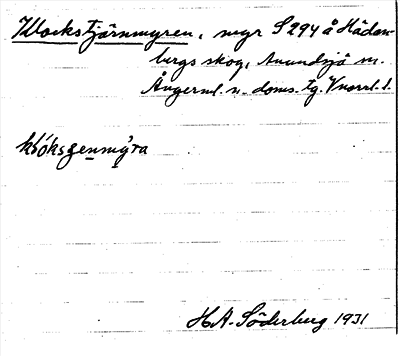 Klockstjärnmyren, myr S 294 å Hädan-
bergs skog, Anundsjö sn.
Ångerml. n. doms. tg. Vnorrl. l.
klóksȩnmy̆ra
H A. Söderberg 1931